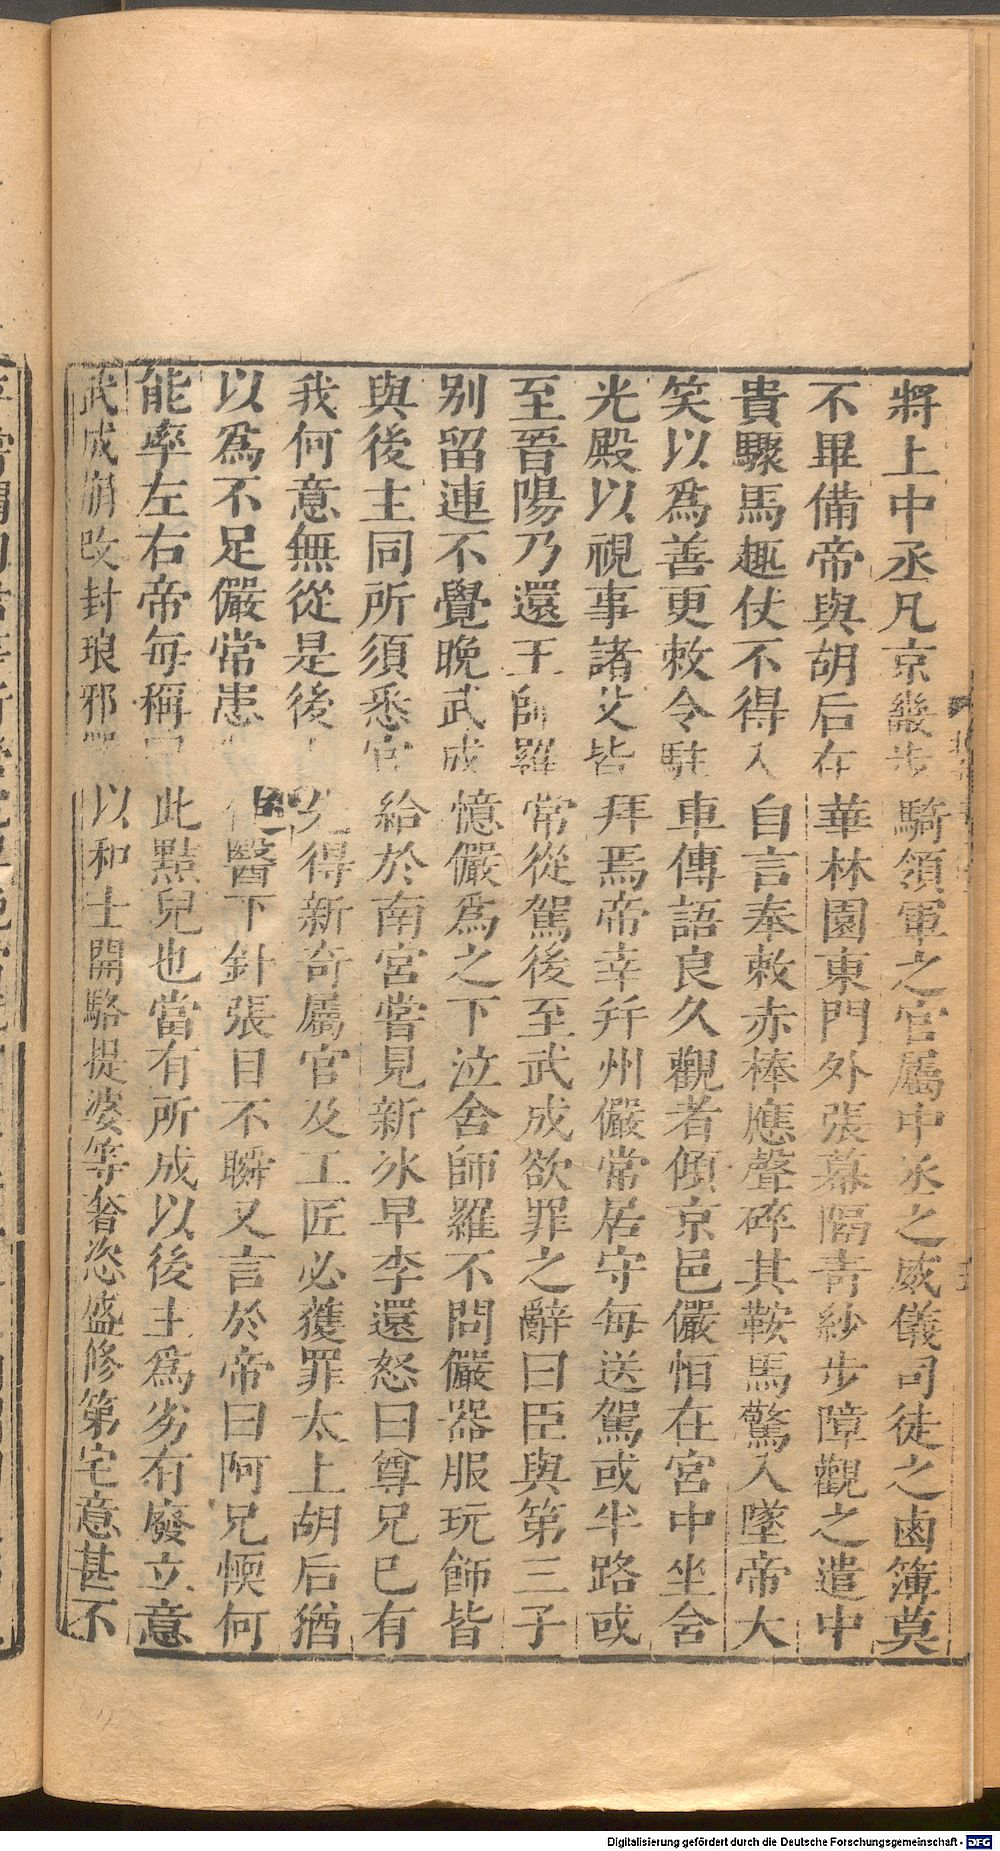 將上中丞凡京畿步騎領軍之官屬中丞之威儀司徒之鹵簿莫
不畢備帝與胡后在華林園東門外張幕隔青紗步障觀之遣中
貴驟馬趣仗不得入自言奉敕赤棒應聲碎其鞍馬驚人墜帝大
笑以爲善更敕令駐車傳語良久觀者傾京邑儼恒在宮中坐含
光殿以視事諸父皆拜焉帝幸幷州儼常居守每送駕或半路或
至晉陽乃還王師羅常從駕後至武成欲罪之辭曰臣與第三子
別留連不覺晚武成憶儼爲之下泣舍師羅不問儼器服玩飾皆
與後主同所須悉官給於南宮嘗見新冰早李還怒曰尊兄已有
我何意無從是後主先得新奇屬官及工匠必獲罪太上胡后猶
以爲不足儼常患使醫下針張目不瞬又言於帝曰阿兄愞何
能率左右帝每稱曰此黠兒也當有所成以後主爲劣有廢立意
武成崩改封琅邪以和士開駱提婆等奢恣盛修第宅意甚不
Digitalisierung gefördert durch die Deutsche Forschungsgemeinschaft - DFG